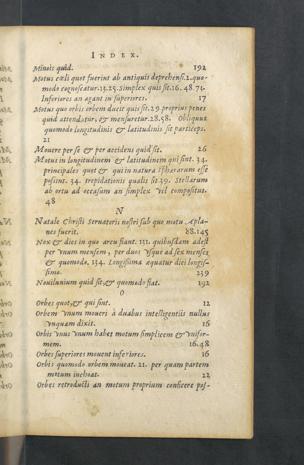 INDEX.
Minois quid. 192
Motus cœli quot fuerint ab antiquis deprehensi. 2. quo-
modo cognoscatur. 13.25. simplex quis sit. 16. 48. 71.
Inferiores an agant in superiores. 17
Motus quo orbis orbem ducit quis sit. 29. proprius penes
quid attendatur, & mensuretur. 28. 58. Obliquus
quomodo longitudinis & latitudinis sit particeps.
21
Mouere per se & per accidens quid sit. 26
Motus in longitudinem & latitudinem qui sint. 34.
principales quot & qui in natura sphærarum esse
possint. 34. trepidationis qualis sit. 39. Stellarum
ab ortu ad occasum an simplex vel compositus.
48
N
Natale Christi Seruatoris nostri sub quo motu Apla-
nes fuerit. 88.145
Nox & dies in quo arcu fiant. 131. quibusdam adest
per vnum mensem, per duos vsque ad sex menses
& quomodo. 134. Longissima æquatur diei longis-
simæ. 239
Nouilunium quid sit, & quomodo fiat. 192
O
Orbes quot, & qui sint. 12
Orbem vnum moueri à duabus intelligentiis nullus
vnquam dixit. 16
Orbis vnus vnum habet motum simplicem & vnifor-
mem. 16.48
Orbes superiores mouent inferiores. 16
Orbis quomodo orbem moueat. 21. per quam partem
motum inchoat. 22
Orbes retroducti an motum proprium conficere pos-